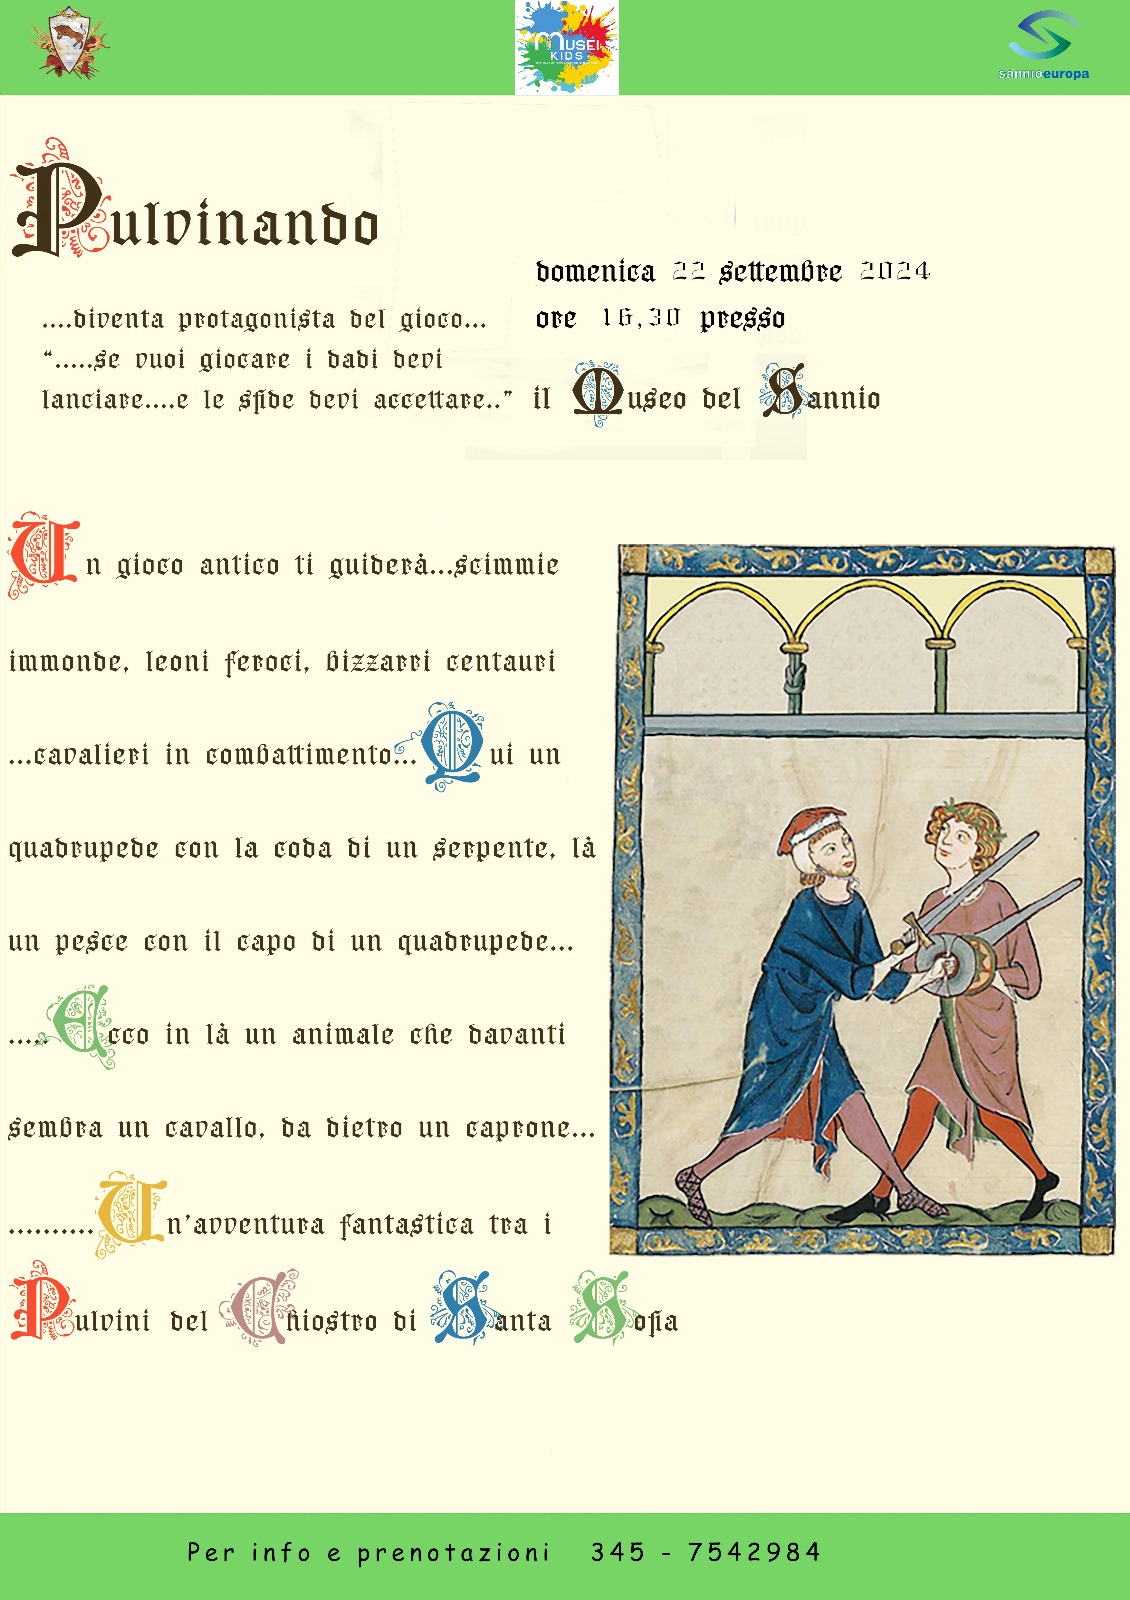 MUSEI
KIDS
sannioeuropa
Pulvinando
domenica 22 settembre 2024
ore 16,30 presso
il Museo del Sannio
....diventa protagonista del gioco...
“.....se vuoi giocare i dadi devi
lanciare....e le sfide devi accettare..”
Un gioco antico ti guiderà...scimmie
immonde, leoni feroci, bizzarri centauri
...cavalieri in combattimento...Qui un
quadrupede con la coda di un serpente, là
un pesce con il capo di un quadrupede...
....Ecco in là un animale che davanti
sembra un cavallo, da dietro un caprone...
..........Un'avventura fantastica tra i
Pulvini del Chiostro di Santa Sofia
Per info e prenotazioni 345 - 7542984